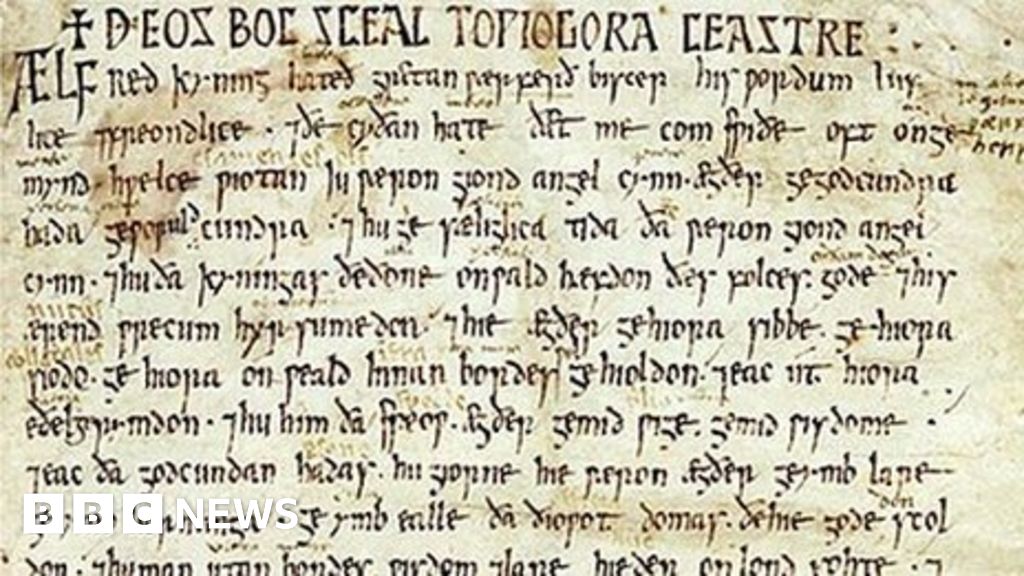 ✝ ÐEOS BOC SCEAL TO ǷIOGORA CEASTRE
ÆLFred kyning hateð gretan ƿærferð biscep his ƿordum luf
lice ⁊ freondlice · ⁊ ðe cyðan hate ðæt me com sƿiðe oft onge
mynd · hƿelce ƿiotan iu ƿæron giond angel cynn · ægðer ge godcundra
hada ge ƿoruld cundra · ⁊ hu ge sæliglica tida ða ƿæron giond angel
cynn · ⁊ hu ða kyningas ðe ðone onƿald hæfdon ðæs folces. gode ⁊ his
ærend ƿrecum hyrsumedon · ⁊ hie ægðer ge hiora sibbe. ge hiora
siodo · ge hiora onƿeald innan bordes ge hioldon. ⁊ eac ut hiora
eðel gerymdon · ⁊ hu him ða speoƿ. ægðer ge mid ƿige. ge mid ƿisdome ·
⁊ eac ða godcundan hadas. hu giorne hie ƿæron ægðer ge ymb lare
ge ymb ealle ða ðioƿot domas. ðe hie gode don scol
don · ⁊ hu man utan bordes ƿisdom ⁊ lare hieder on lond sohte · ⁊
BBC NEWS